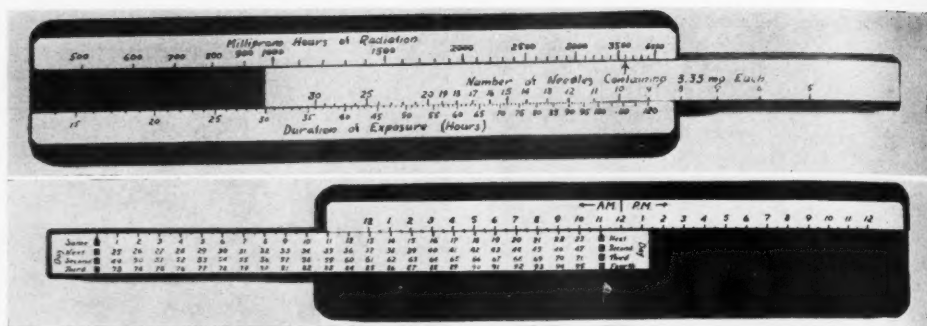 Milligram Hours of Radiation
500 600 700 800 900 1000 1500 2000 2500 3000 3500
Number of Needles Containing 3.33 mg Each
30 25 20 19 18 17 16 15 14 13 12 11 10 9 8 7 6 5
15 20 30 35 40 45 50 55 60 65 70 75 80 85 90 95 100 110 120
Duration of Exposure (Hours)
←AM P.M.→
12 1 2 3 4 5 6 7 8 9 10 11 12 1 2 3 4 5 6 7 8 9 10 11 12
Day
Same 1 2 3 4 5 6 7 8 9 10 11 12 13 14 15 16 17 18 19 20 21 22 23 Next
Next 25 26 27 28 29 30 31 32 33 34 35 36 37 38 39 40 41 42 43 44 45 46 47 Second
Second 49 50 51 52 53 54 55 56 57 58 59 60 61 62 63 64 65 66 67 68 69 70 71 Third
Third 73 74 75 76 77 78 79 80 81 82 83 84 85 86 87 88 89 90 91 92 93 94 95 Fourth
Day